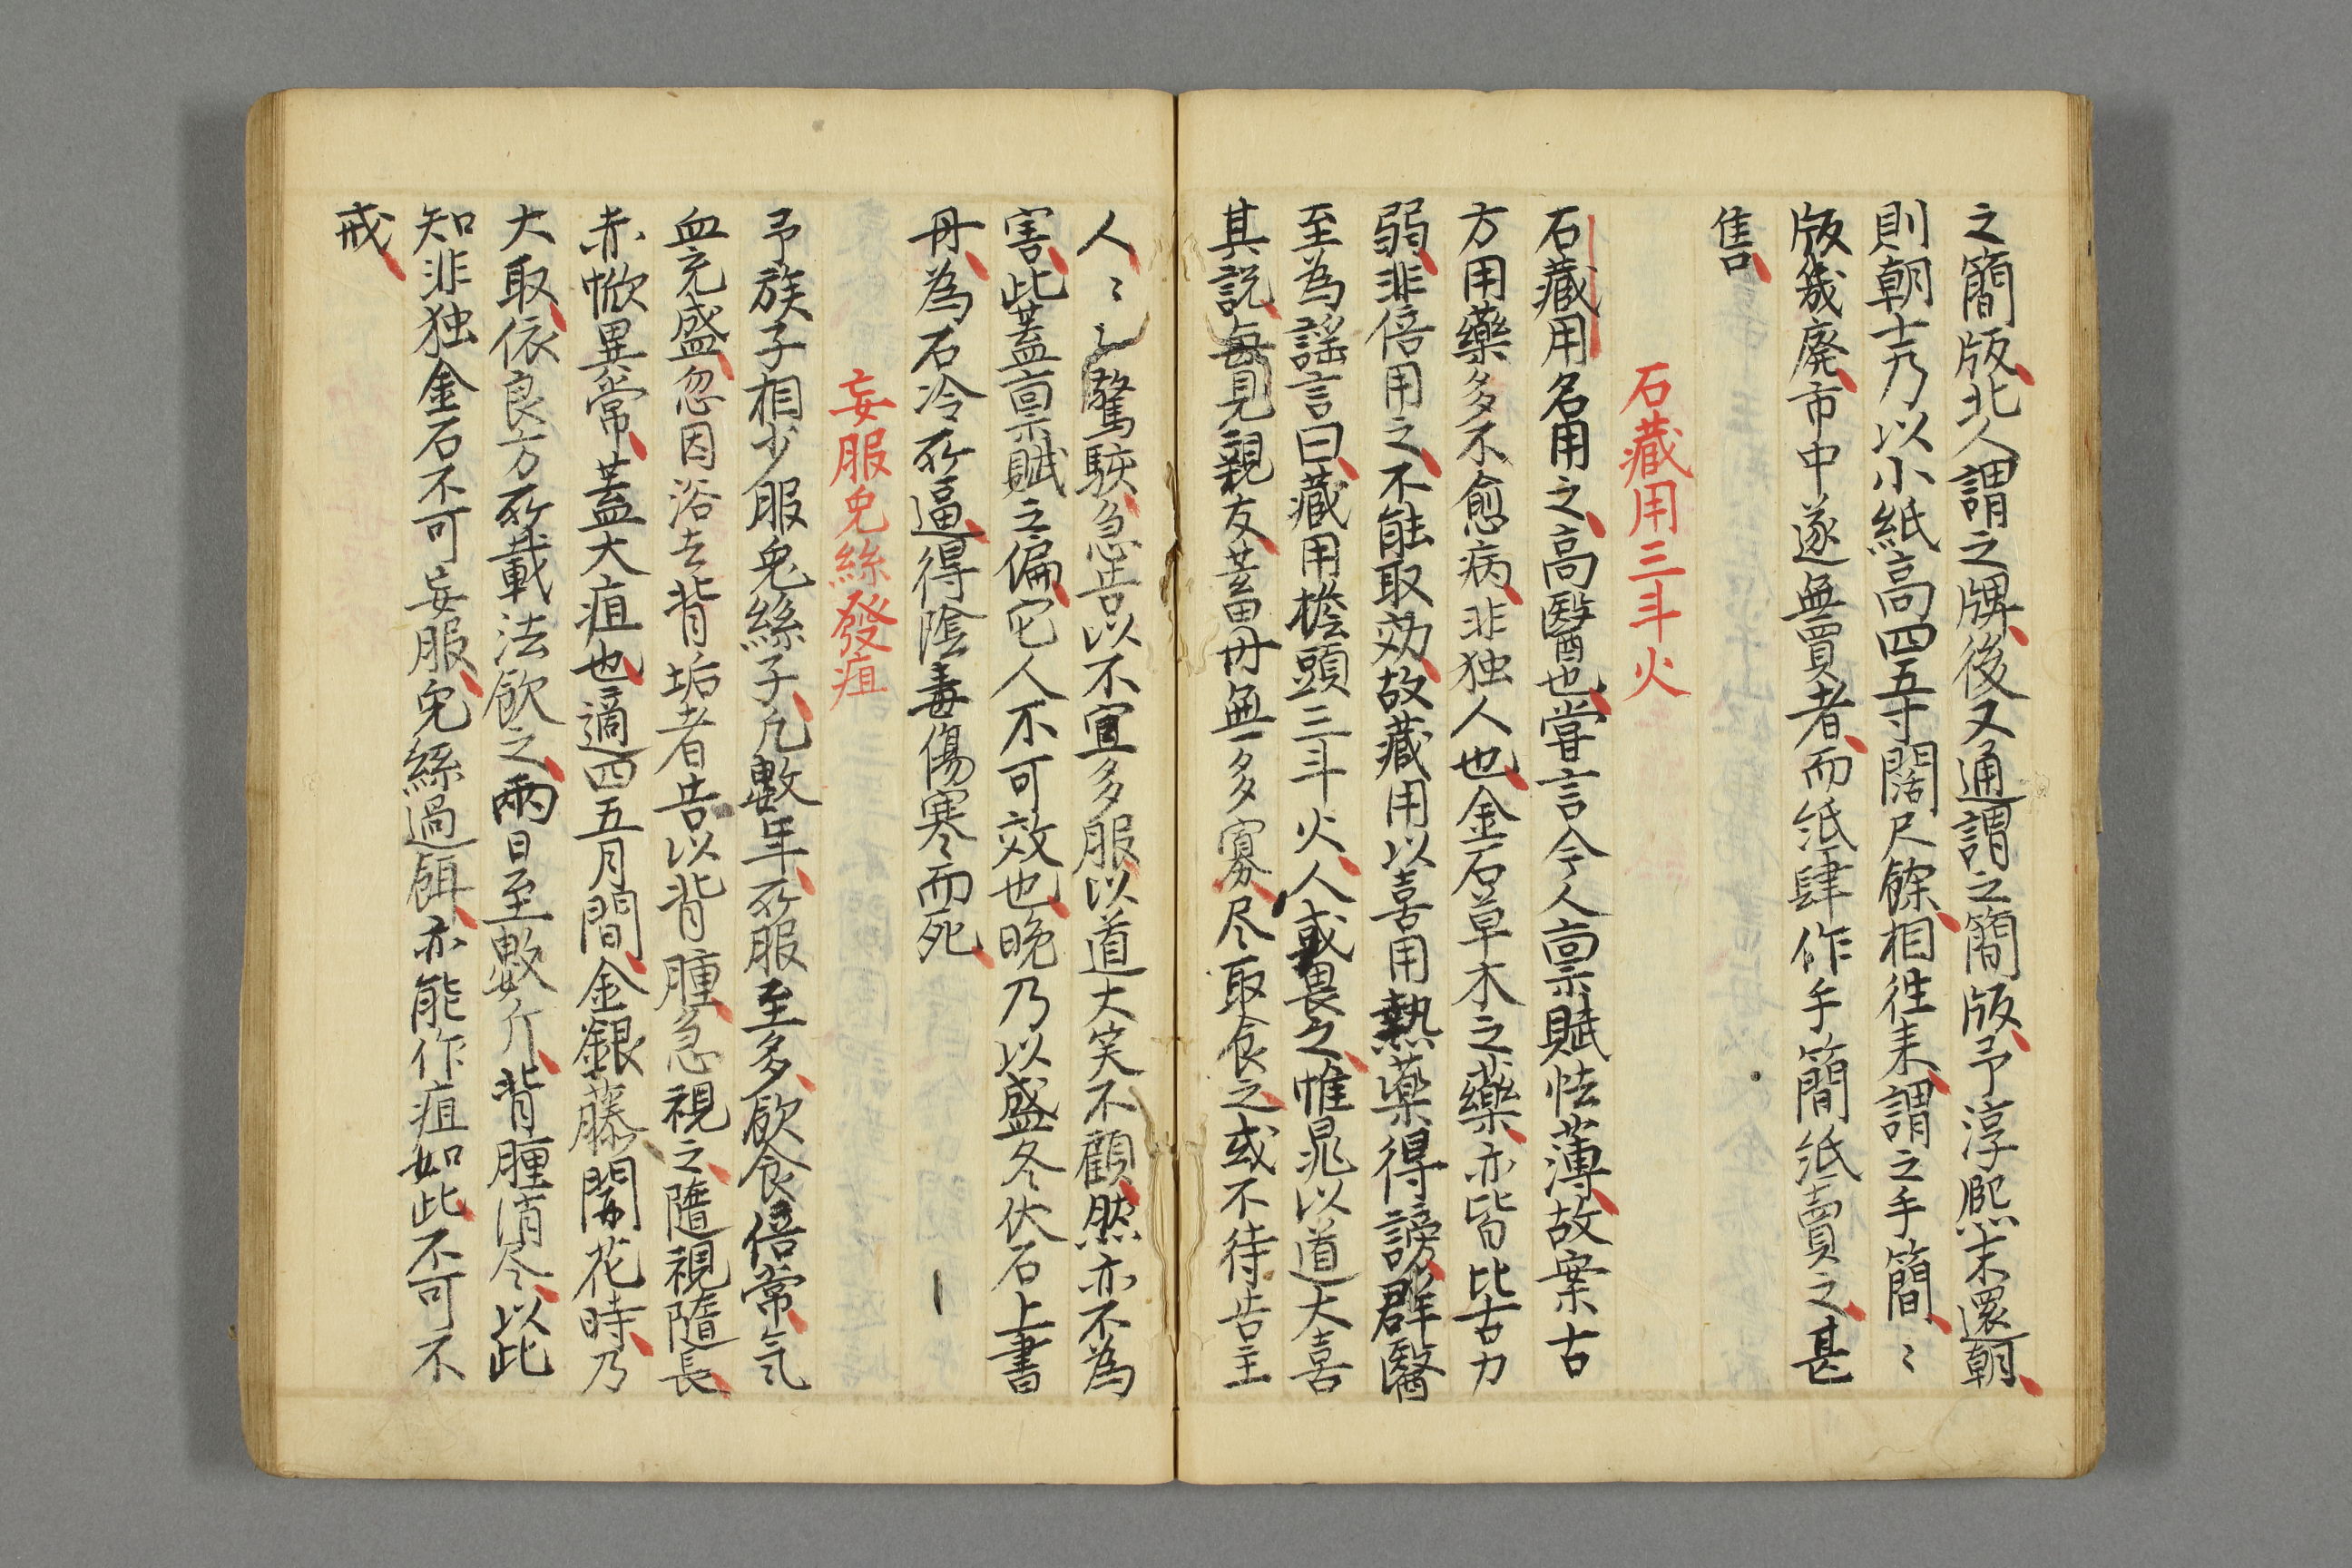 之簡版北人謂之牌後又通謂之簡版予淳熈末還朝
則朝士乃以小紙高四五寸闊尺餘相往来謂之手簡〻
版幾廃市中遂無買者而紙肆作手簡紙賣之甚
售
石藏用三斗火
石藏用名用之高醫也嘗言今人禀賦怯薄故案古
方用藥多不愈病非独人也金石草木之藥亦皆比古力
弱非倍用之不能取効故藏用以喜用熱藥得謗群醫
至為謡言曰藏用檐頭三斗火人或畏之惟晁以道大喜
其説毎見親友蓄丹無多寡尽取食之或不待告主
人〻之驚駭急告以不宜多服以道大笑不顧然亦不為
害此蓋禀賦之偏它人不可效也晩乃以盛冬伏石上書
丹為石冷所逼得陰毒傷寒而死
妄服兔絲發疽
予族子相少服兔絲子凡數年所服至多飲食倍常氣
血充盛忽因浴去背垢者告以背腫急視之隨視隨長
赤焮異常蓋大疽也適四五月間金銀藤開花時乃
大取依良方所載法飲之兩日至數斤背腫消尽以此
知非独金石不可妄服兔絲過餌亦能作疽如此不可不
戒